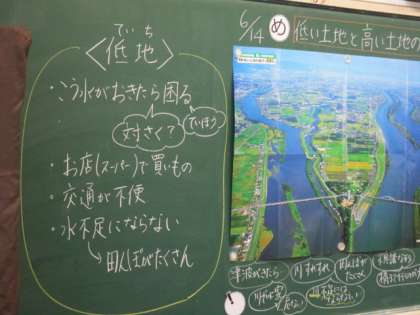 ていち
〈低地〉
・こう水がおきたら困る
対さく?
ていぼう
・お店(スーパー)で買いもの
・交通が不便
・水不足にならない
→田んぼがたくさん
6/14 め 低い土地と高い土地の
津波がきたら
川すれすれ
田んぼが たくさん